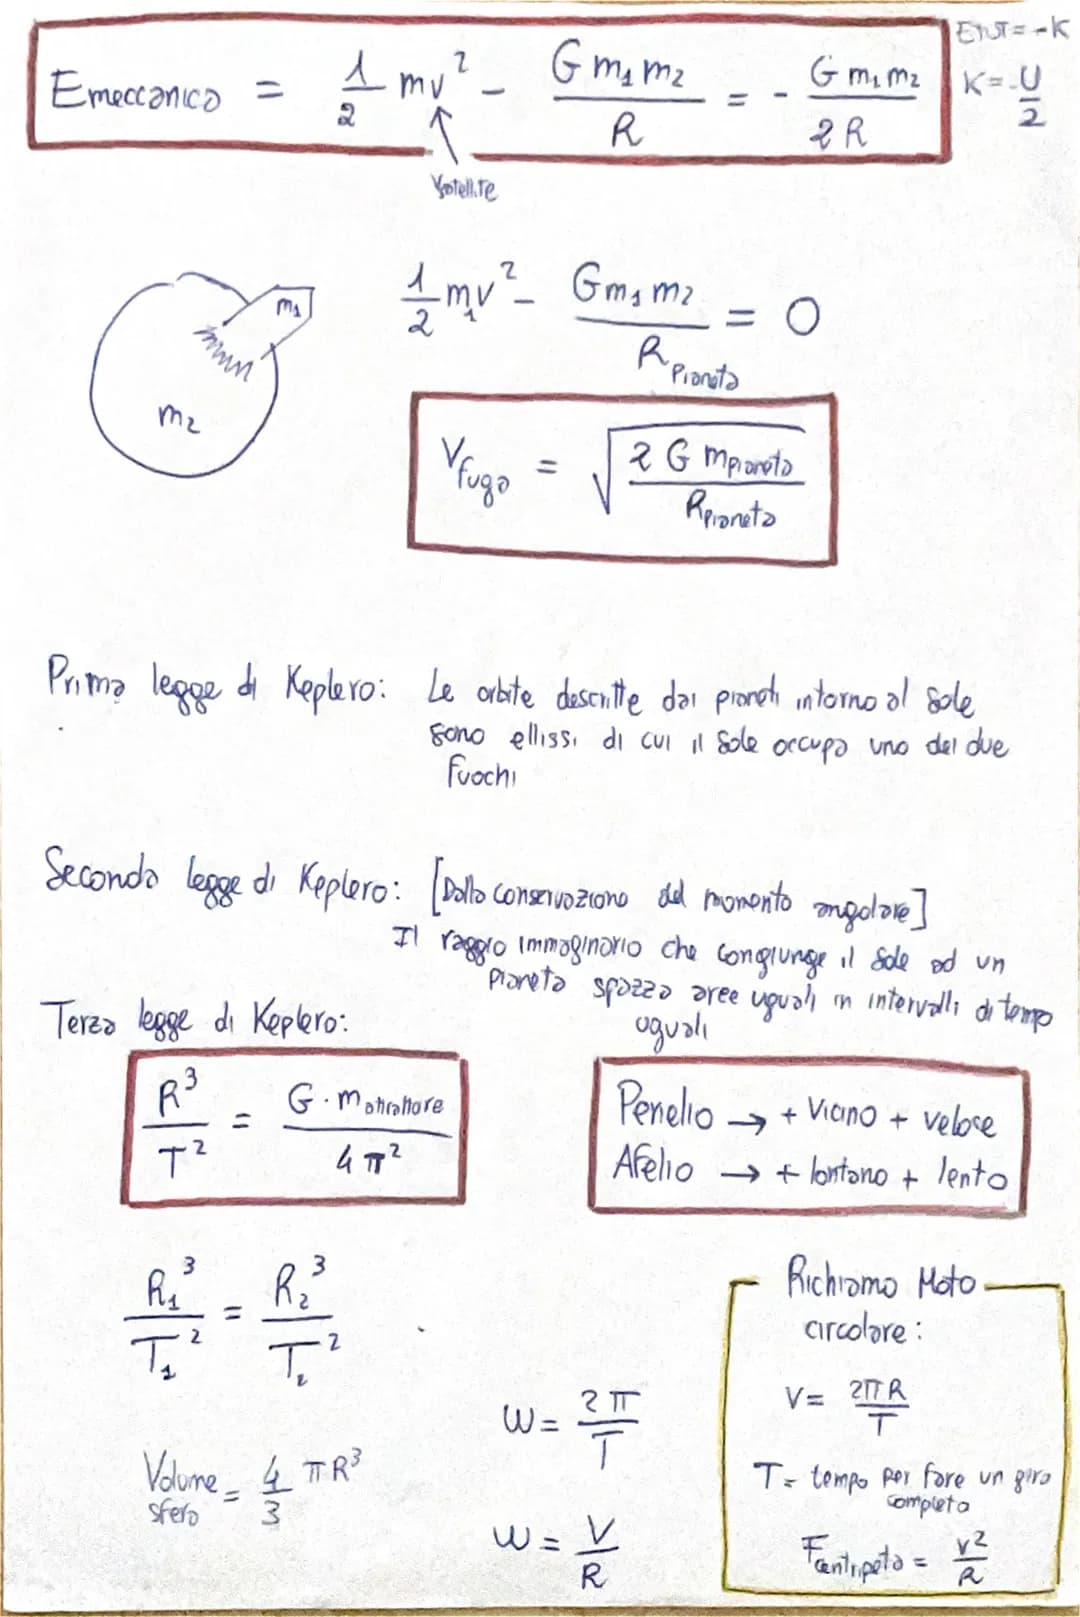 Emeccanica = 1/2 mv² - G m₁ m₂ / R = - G m₁ m₂ / 2R
Etot = -K
K = -U/2
Vsatellite
m₁
m₂
1/2 m₁v² - G m₁ m₂ / R Pianeta = 0
Vfuga = √(2 G mpianeta / Rpianeta)
Prima legge di Keplero: Le orbite descritte dai pianeti intorno al Sole
sono ellissi di cui il Sole occupa uno dei due
fuochi
Seconda legge di Keplero: [Dalla conservazione del momento angolare]
Il raggio immaginario che congiunge il Sole ad un
pianeta spazza aree uguali in intervalli di tempo
uguali
Terza legge di Keplero:
R³/T² = G · m attrattore / 4π²
Perielio → + vicino + veloce
Afelio → + lontano + lento
R₁³/T₁² = R₂³/T₂²
Volume sfera = 4/3 πR³
ω = 2π/T
ω = V/R
Richiamo Moto
circolare:
V = 2πR/T
T = tempo per fare un giro
completo
Fcentripeta = v²/R